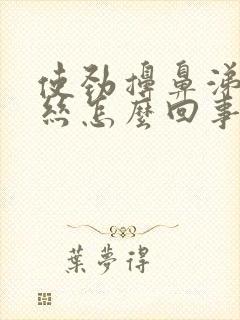 使劲擤鼻涕
丝怎麼回事
葉夢得